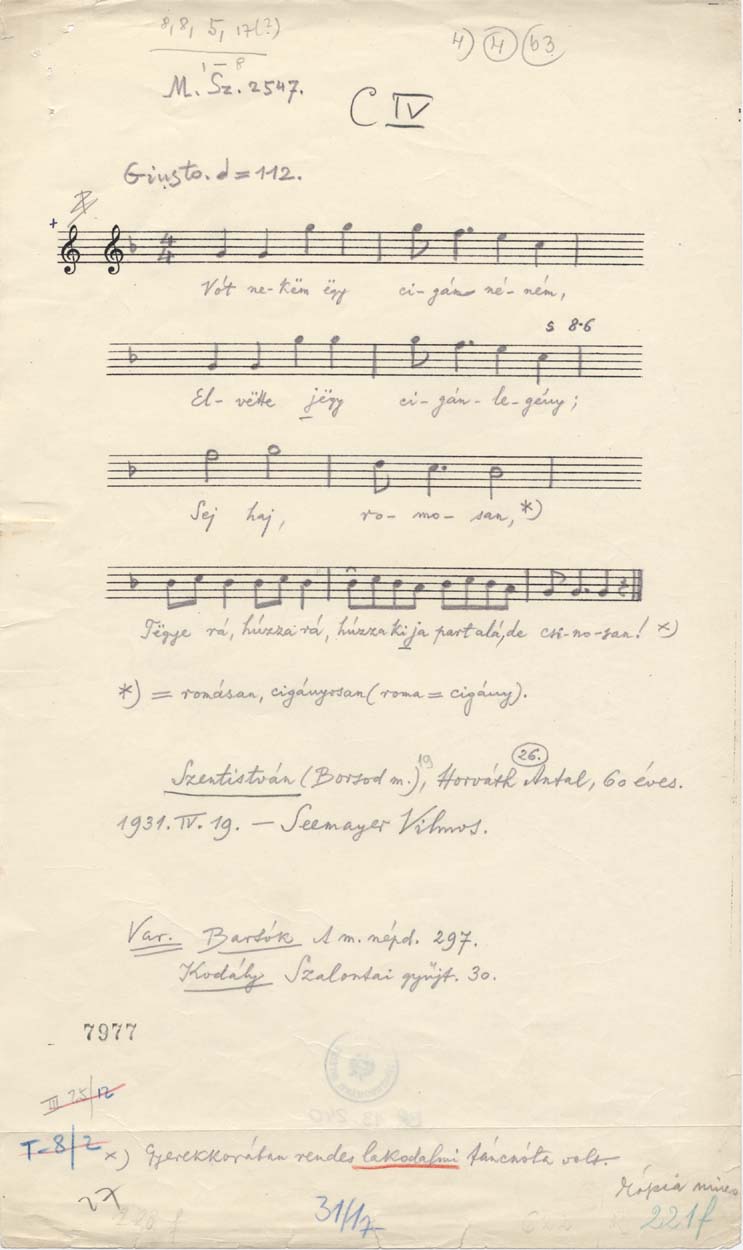 8, 8, 5, 17(?)
4) 4 b3
1–8
M. Sz. 2547.
C IV
Giusto. d = 112.
+
4
4
Vót ne-këm ëgy ci-gán né-ném,
s 8-6
El-vëtte jëgy ci-gán-le-gény;
Sej haj, ro-mo-san,*)
Tëgye rá, húzza rá, húzza ki ja part alá, de csi-no-san! x)
*) = romásan, cigányosan (roma = cigány).
Szentistván (Borsod m.) 19, Horváth Antal, 60 éves.
26.
1931. IV. 19. – Seemayer Vilmos.
Var. Bartók A m. népd. 297.
Kodály Szalontai gyűjt. 30.
7977
III 25/12
T-8/2
x) Gyerekkorában rendes lakodalmi táncnóta volt.
Kópia nincs
31/17
221f